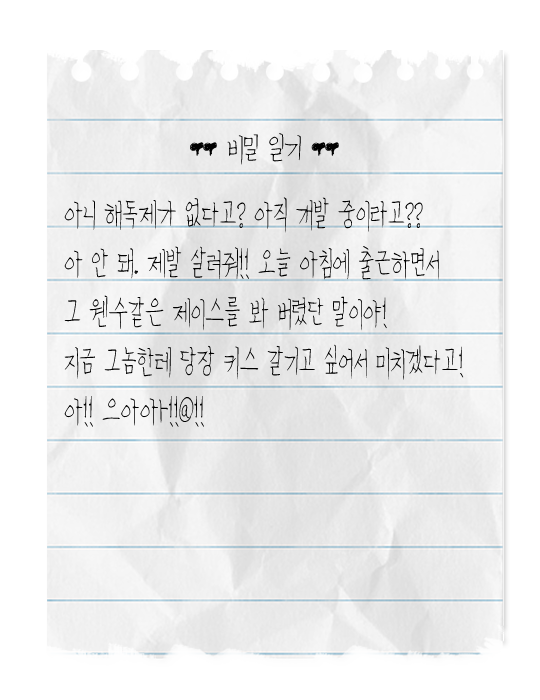 비밀 일기
아니 해독제가 없다고? 아직 개발 중이라고??
아 안 돼. 제발 살려줘!! 오늘 아침에 출근하면서
그 웬수같은 제이스를 봐 버렸단 말이야!
지금 그놈한테 당장 키스 갈기고 싶어서 미치겠다고!
아!! 으아아아!!@!!